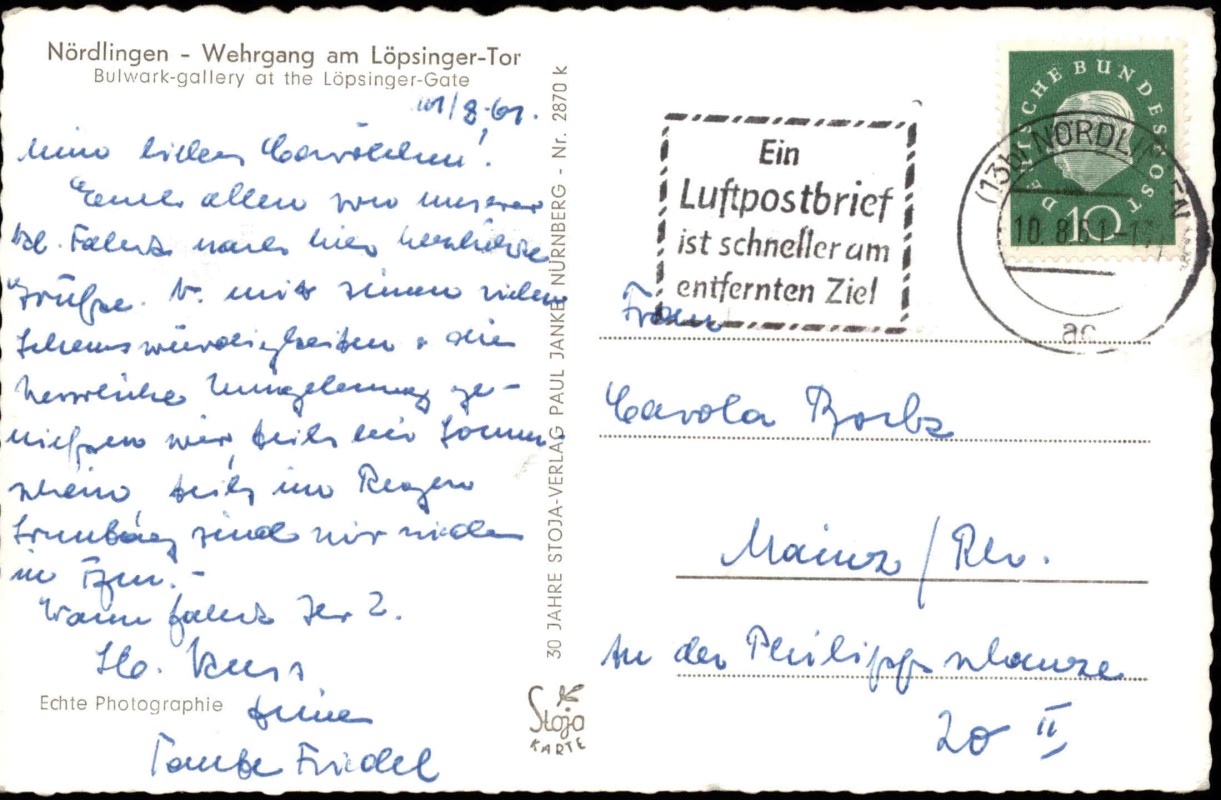 Nördlingen - Wehrgang am Löpsinger-Tor
Bulwark-gallery at the Löpsinger-Gate
/8.61.
Mein liebes Carölchen!
Euch allen von unserer
kl. Fahrt nach hier herzliche
Grüße. N. mit seinen vielen
Sehenswürdigkeiten u. die
herrliche Umgebung ge-
nießen wir, teils bei Sonnen-
schein teils im Regen
Sonntag sind wir wieder
in
Wann fahrt Ihr 2.
Hb. Kuss
Deine
Tante Friedel
Echte Photographie
30 JAHRE STOJA-VERLAG PAUL JANKE NÜRNBERG - Nr. 2870 k
Stoja
KARTE
Ein
Luftpostbrief
ist schneller am
entfernten Ziel
DEUTSCHE BUNDESPOST
10
(13b) NÖRDLINGEN
10.8.61.-17
ac
Frau
Carola
Mainz/Rh.
An der Philippsschanze
20 II